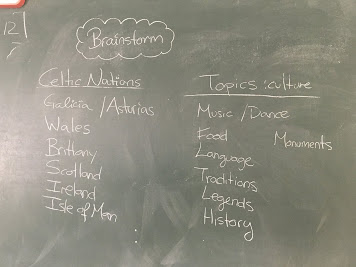 12
Brainstorm
Celtic Nations
Galicia /Asturias
Wales
Brittany
Scotland
Ireland
Isle of Man
Topics : culture
Music / Dance
Food Monuments
Language
Traditions
Legends
History